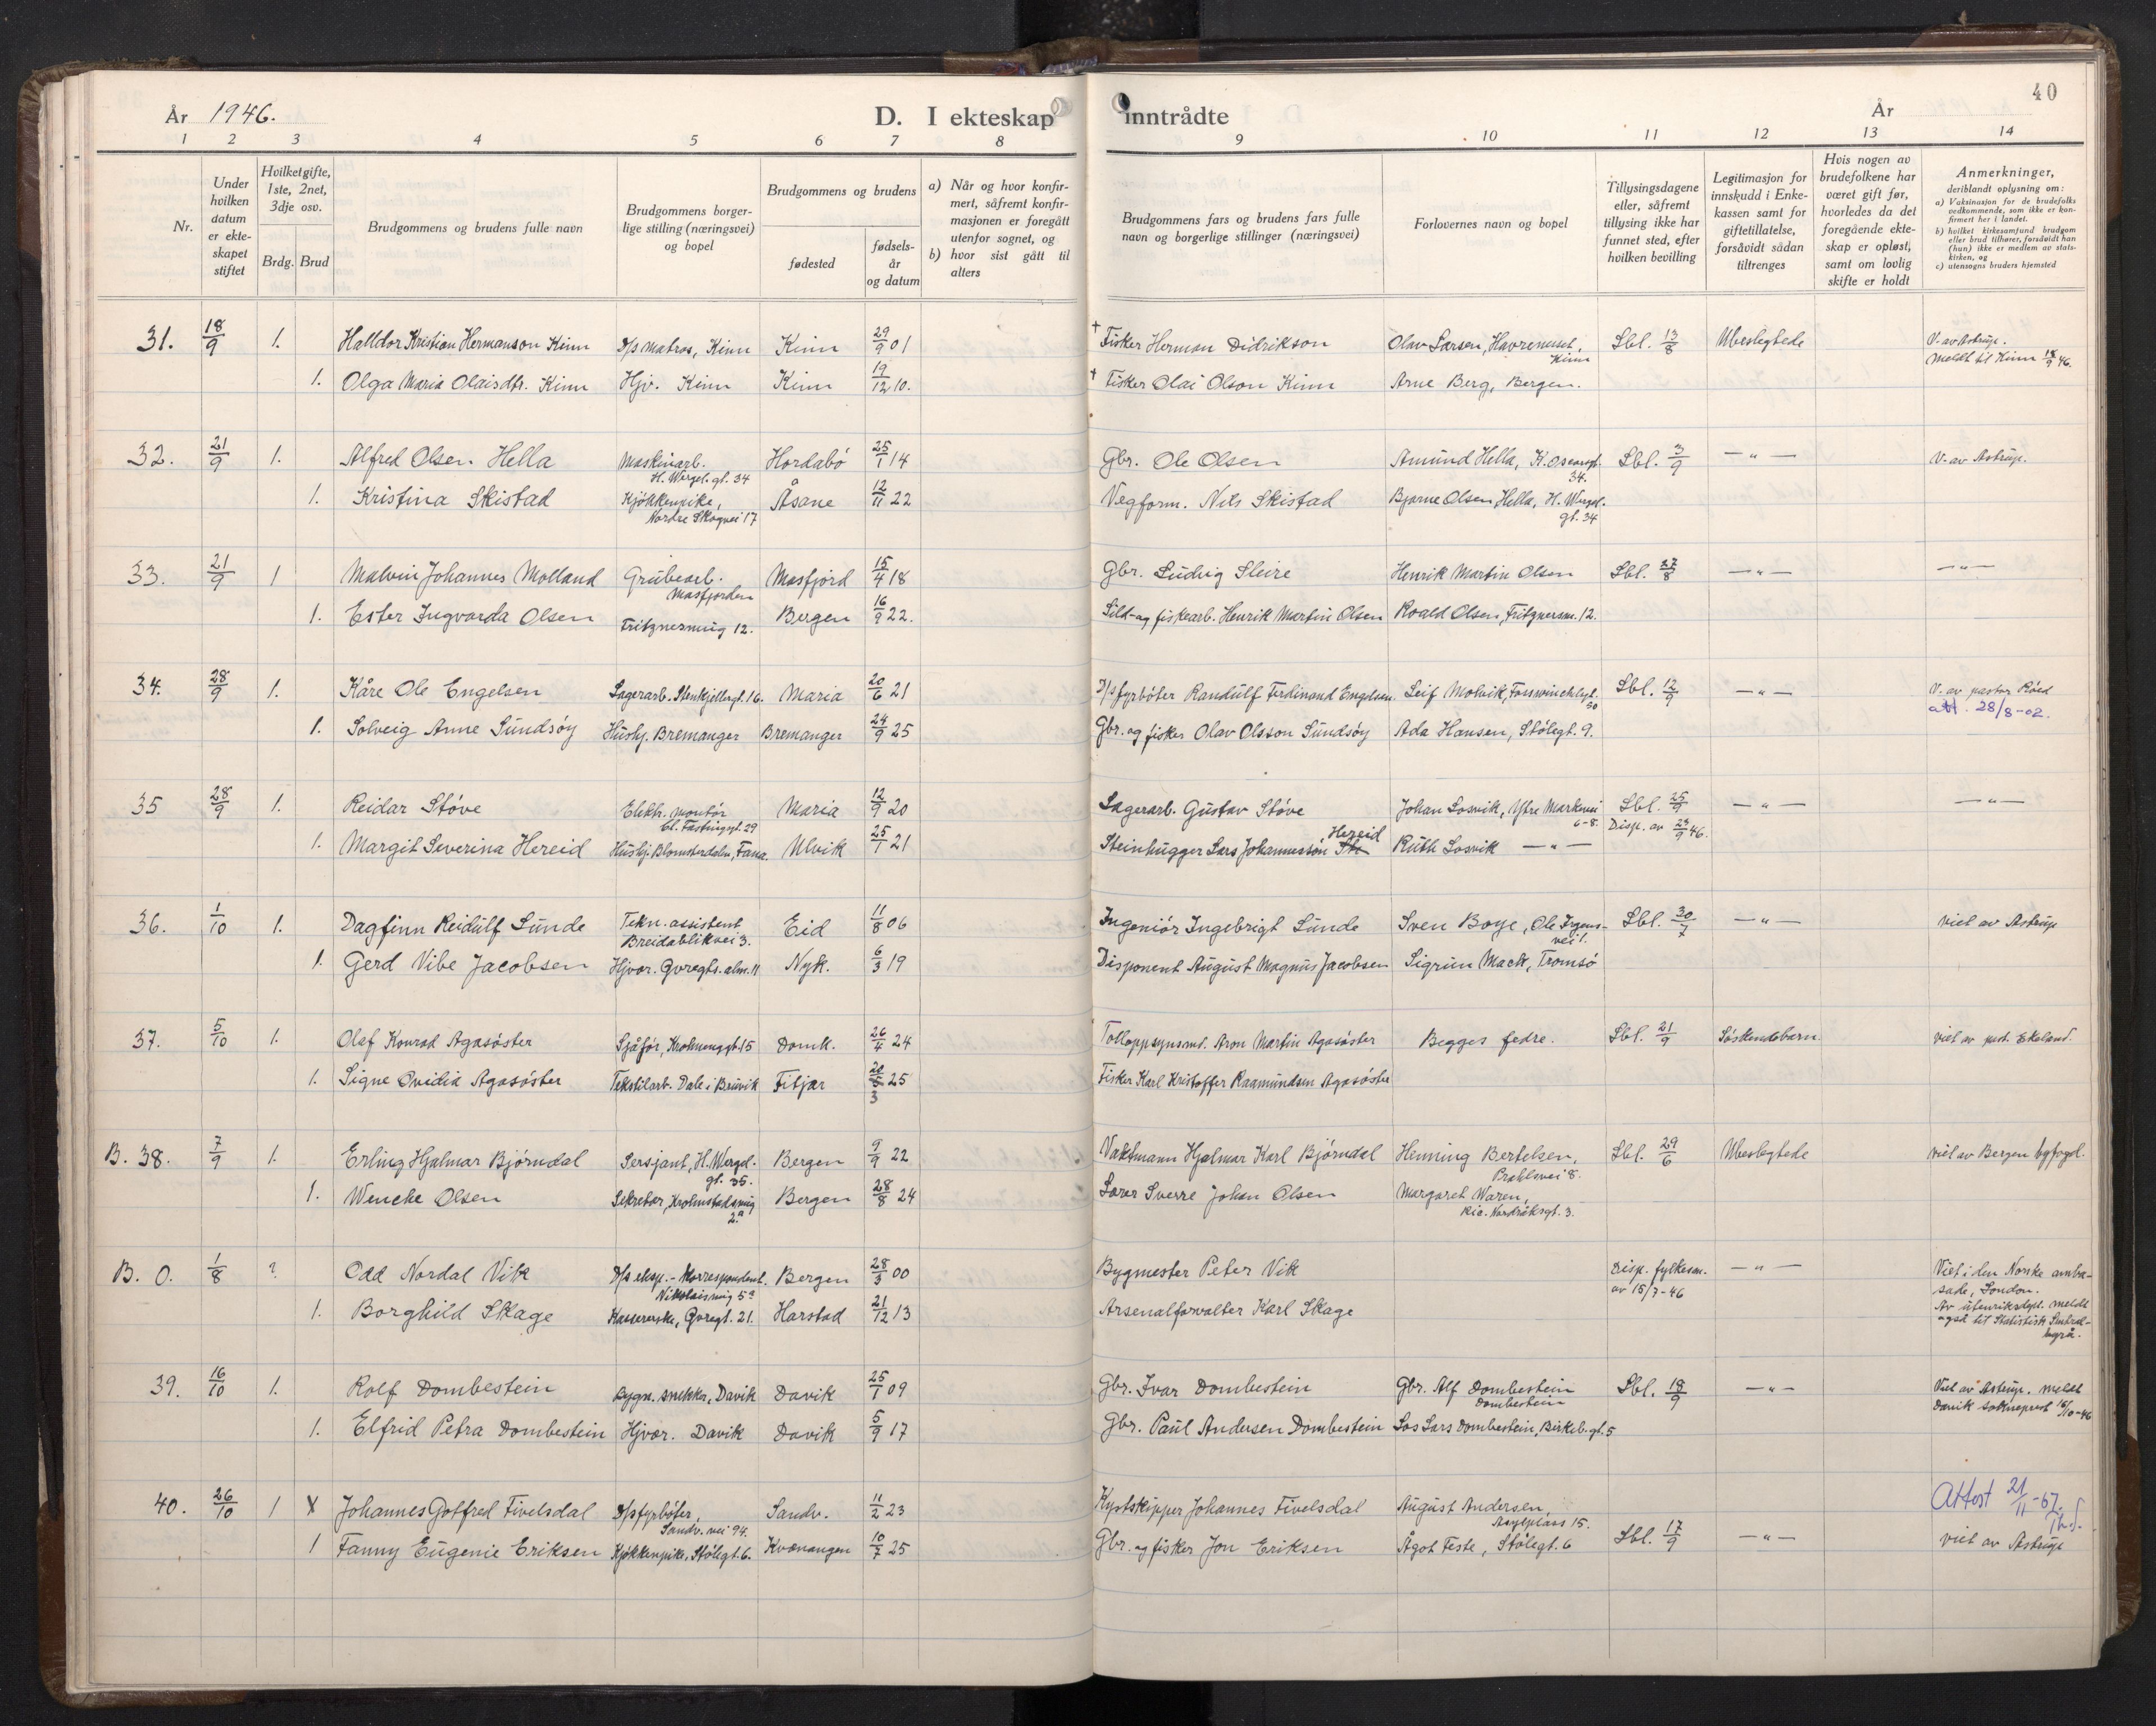 År 1946.
D. I ekteskap inntrådte
År
40
1 2 3 4 5 6 7 8 9 10 11 12 13 14
Nr.
Under hvilken datum er ekte-skapet stiftet
Hvilket gifte, 1ste, 2net, 3dje osv.
Brdg. Brud
Brudgommens og brudens fulle navn
Brudgommens borger-lige stilling (næringsvei) og bopel
Brudgommens og brudens
fødested
fødsels-år og datum
a) Når og hvor konfir-mert, såfremt konfir-masjonen er foregått utenfor sognet, og
b) hvor sist gått til alters
Brudgommens fars og brudens fars fulle navn og borgerlige stillinger (næringsvei)
Forlovernes navn og bopel
Tillysingsdagene eller, såfremt tillysing ikke har funnet sted, efter hvilken bevilling
Legitimasjon for innskudd i Enke-kassen samt for giftetillatelse, forsåvidt sådan tiltrenges
Hvis nogen av brudefolkene har været gift før, hvorledes da det foregående ekte-skap er opløst, samt om lovlig skifte er holdt
Anmerkninger, deriblandt oplysning om:
a) Vaksinasjon for de brudefolks vedkommende, som ikke er kon-firmert her i landet.
b) hvilket kirkesamfund brudgom eller brud tilhører, forsåvidt han (hun) ikke er medlem av stats-kirken, og
c) utensogns bruders hjemsted
31. 18/9 1. Halldor Kristian Hermanson Kinn D/s matros, Kinn Kinn 29/9 01 † Fisker Herman Didrikson Olav Larsen, Havreneset, Kinn Lbl. 13/8 Ubeslegtede V. av Astrup. Meldt til Kinn 18/9 46.
1. Olga Maria Olaisdtr. Kinn Hjv. Kinn Kinn 19/12 10. † Fisker Olai Olson Kinn Arne Berg, Bergen.
32. 21/9 1. Alfred Olsen Hella Maskinarb. H. Wergel. gt. 34 Hordabø 25/1 14 Gbr. Ole Olsen Amund Hella, K. Oscarsgt. 34. Lbl. 3/9 — " — V. av Astrup.
1. Kristina Skistad Kjøkkenpike, Nordre Skogvei 17 Åsane 12/11 22 Vegform. Nils Skistad Bjarne Olsen Hella, H. Wergel. gt. 34
33. 21/9 1 Malvin Johannes Molland Grubearb. Masfjorden Masfjord 15/4 18 Gbr. Ludvig Sleire Henrik Martin Olsen Lbl. 27/8 — " — — " —
1. Ester Ingvarda Olsen Fritznersmug 12. Bergen 16/9 22. Sild- og fiskearb. Henrik Martin Olsen Roald Olsen, Fritznersm. 12.
34. 28/9 1. Kåre Ole Engelsen Lagerarb. Stenkjellergt. 16. Maria 20/6 21 D/s fyrbøter Randulf Ferdinand Engelsen Leif Molvik, Fosswinckelsgt. 50 Lbl. 12/9 — " — V. av pastor Røed att. 28/8-02.
1. Solveig Anne Sundsøy Hushj. Bremanger Bremanger 24/9 25 Gbr. og fisker Olav Olsson Sundsøy Ada Hansen, Stølegt. 9.
35 28/9 1. Reidar Støve Elektr. montør Cl. Fastingsgt. 29 Maria 12/9 20 Lagerarb. Gustav Støve Johan Losvik, Ytre Markevei 6-8. Lbl. 25/9 Disp. av 23/9 46. — " — — " —
1. Margit Severina Hereid Hushj. Blomsterdalen, Fana. Ulvik 25/1 21 Steinhugger Lars Johannesson Hereid Ruth Losvik — " —
36. 1/10 1. Dagfinn Reidulf Sunde Tekn. assistent Breidablikvei 3. Eid 11/8 06 Ingeniør Ingebrigt Sunde Sven Boye, Ole Irgens-vei 1. Lbl. 30/7 — " — viet av Astrup
1. Gerd Vibe Jacobsen Hjvor. Øvregts. alm. 11 Nyk. 6/3 19 Disponent August Magnus Jacobsen Sigrun Mack, Tromsø
37. 5/10 1. Olaf Konrad Agasøster Sjåfør, Krohnenggt. 15 Domk. 26/4 24 Tolloppsynsmd. Aron Martin Agasøster Begges fedre. Lbl. 21/9 Søskendebarn. viet av past. Ekeland.
1. Signe Ovidia Agasøster Tekstilarb. Dale i Bruvik Fitjar 20/3 25 Fisker Karl Kristoffer Raamundsen Agasøster
B. 38. 7/9 1. Erling Hjalmar Bjørndal Sersjant, H. Wergel. gt. 35. Bergen 9/9 22 Vaktmann Hjalmar Karl Bjørndal Henning Bertelsen, Prahlsvei 8. Lbl. 29/6 Ubeslegtede viet av Bergen byfogd.
1. Wencke Olsen Sekretær, Krohnstadsmug 2a Bergen 28/8 24 Sverre Johan Olsen Margaret Waren, Ric. Nordråksgt. 3.
B. 0. 1/8 ? Odd Nordal Vik D/s eksp. - Korrespondent. Nikolaismug 5a Bergen 28/3 00 Bygmester Peter Vik Disp. fylkesm. av 15/7-46 — " — Viet i den Norske amba-sade, London. Av utenriksdept. meldt også til Statistisk Sentral-byrå.
1. Borghild Skage Kassererske, Øvregt. 21. Harstad 21/12 13 Arsenalforvalter Karl Skage
39. 16/10 1. Rolf Dombestein Bygn. snekker, Davik Davik 25/1 09 Gbr. Ivar Dombestein Gbr. Alf Dombestein Dombestein Lbl. 18/9 — " — Viet av Astrup. Meldt Davik sokneprest 16/10-46
1. Elfrid Petra Dombestein Hjvor. Davik Davik 5/9 17 Gbr. Paul Andersen Dombestein Lars Dombestein, Birkeb. gt. 5
40. 26/10 1 X Johannes Gotfred Fivelsdal D/s fyrbøter, Sandv. vei 94. Sandv. 11/2 23 Kystskipper Johannes Fivelsdal August Andersen Asylplass 15. Attest 21/11-67.
1 Fanny Eugenie Eriksen Kjøkkenpike, Stølegt. 6. Kvænangen 10/7 25 Gbr. og fisker Jon Eriksen Ågot Feste, Stølegt. 6 Lbl. 17/9 — " — viet av Astrup